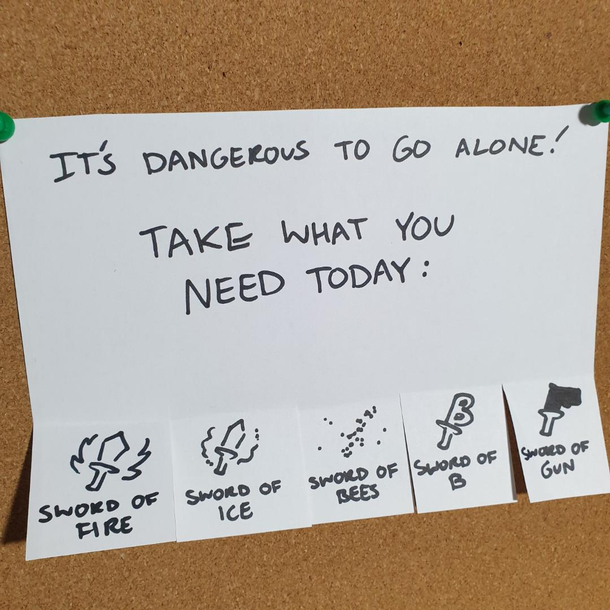 IT'S DANGEROUS TO GO ALONE!
TAKE WHAT YOU
NEED TODAY:
SWORD OF
FIRE
SWORD OF
ICE
SWORD OF
BEES
SWORD OF
B
SWORD OF
GUN